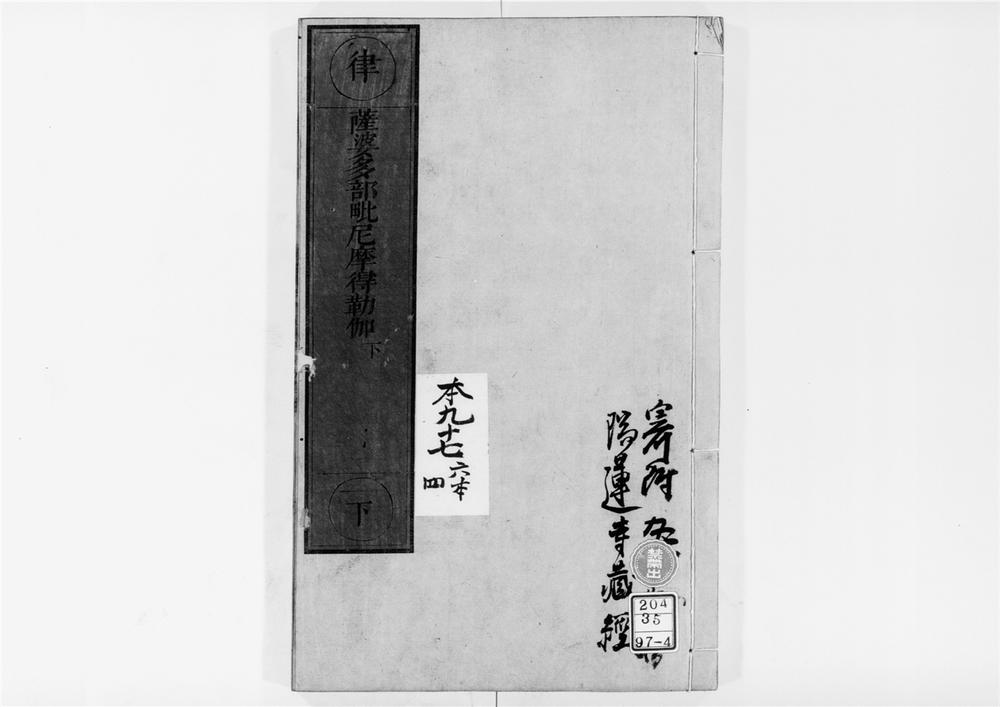 寄附
瑞蓮寺藏經
禁出
204
35
97-4
本九十七
六本
四
律
薩婆多部毗尼摩得勒伽
下
下